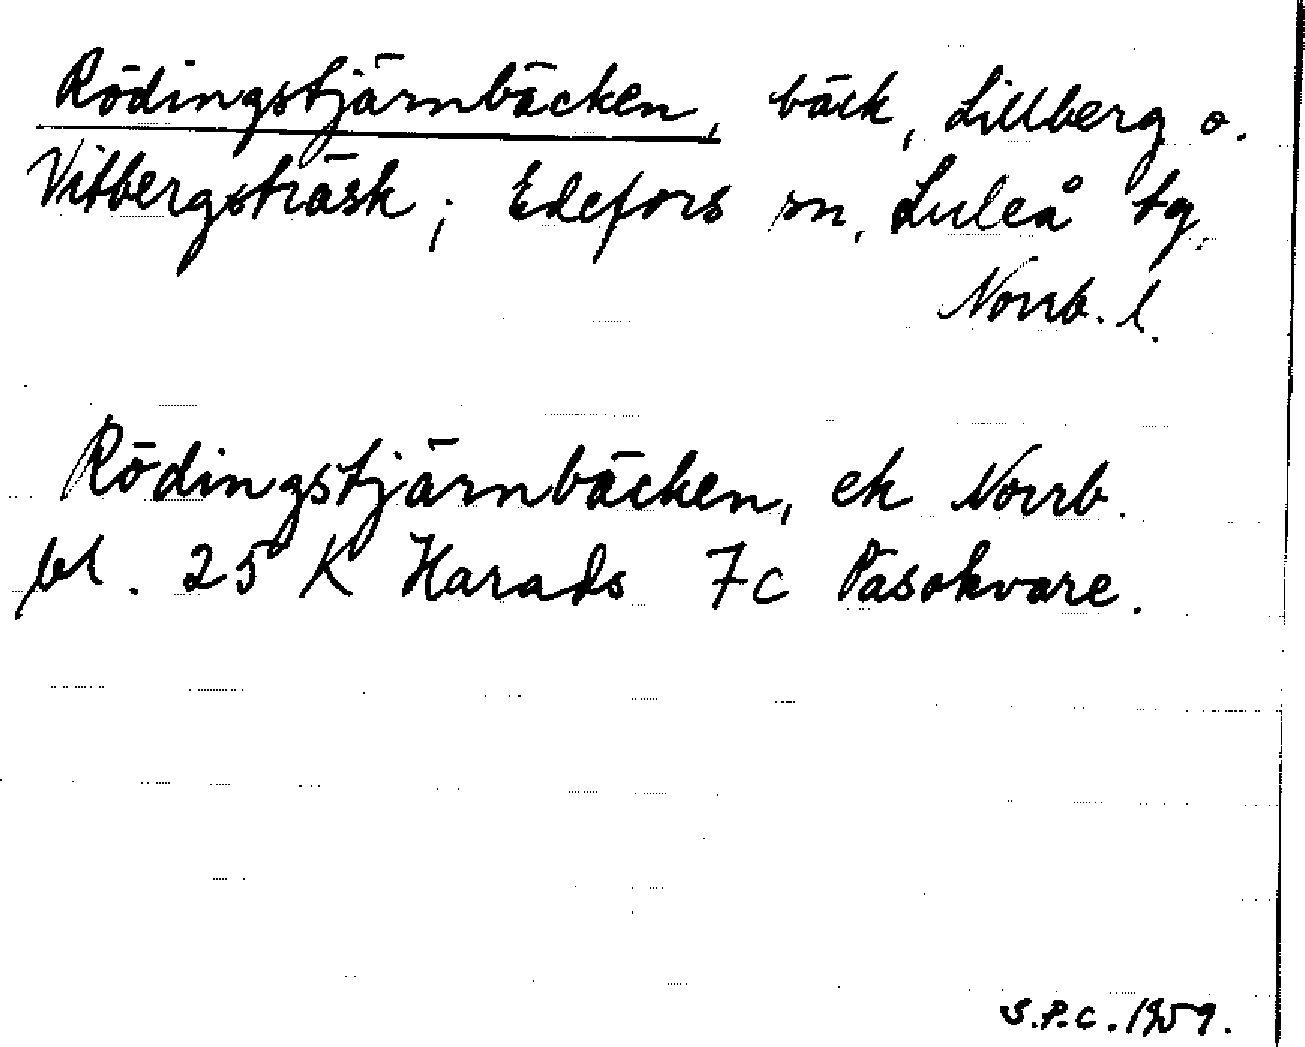 Rödingstjärnbäcken, bäck, Lillberg o.
Vitbergsträsk; Edefors sn, Luleå tg,
Norrb. l.
Rödingstjärnbäcken, ek Norrb.
bl. 25 K Harads 7c Pasokvare.
S.P.C. 1959.